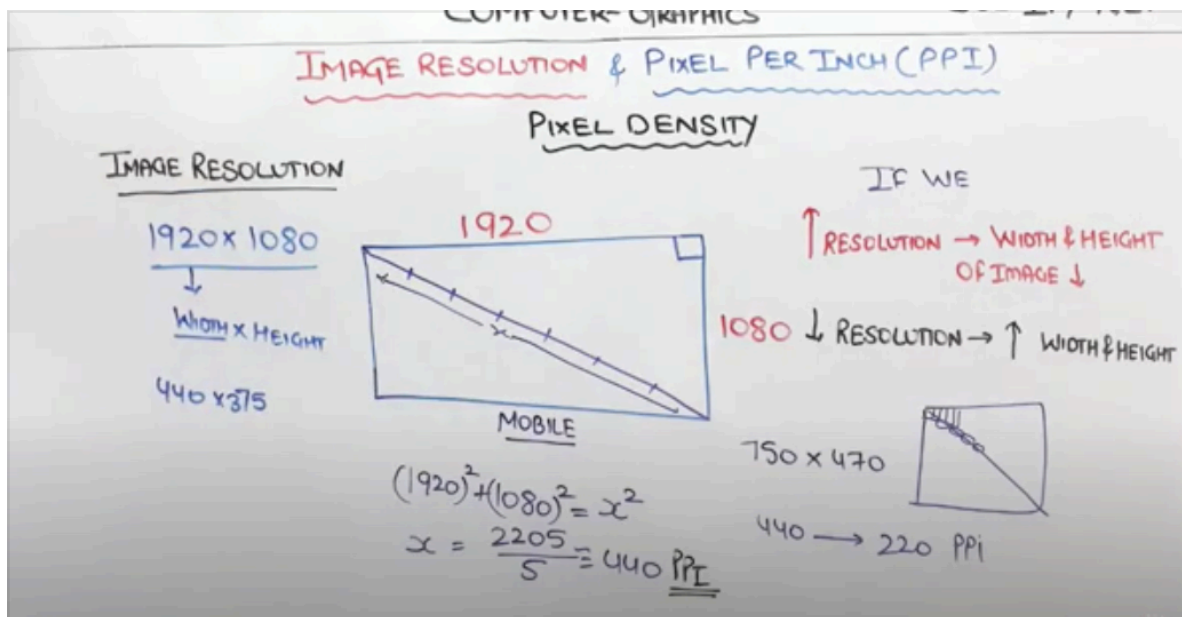 COMPUTER-GRAPHICS
IMAGE RESOLUTION & PIXEL PER INCH (PPI)
PIXEL DENSITY
IMAGE RESOLUTION
1920 x 1080
WIDTH x HEIGHT
440 x 375
1920
1080
MOBILE
(1920)²+(1080)² = x²
x = 2205/5 = 440 PPI
x
IF WE
↑ RESOLUTION → WIDTH & HEIGHT
OF IMAGE ↓
↓ RESOLUTION → ↑ WIDTH & HEIGHT
750 x 470
440 → 220 PPi